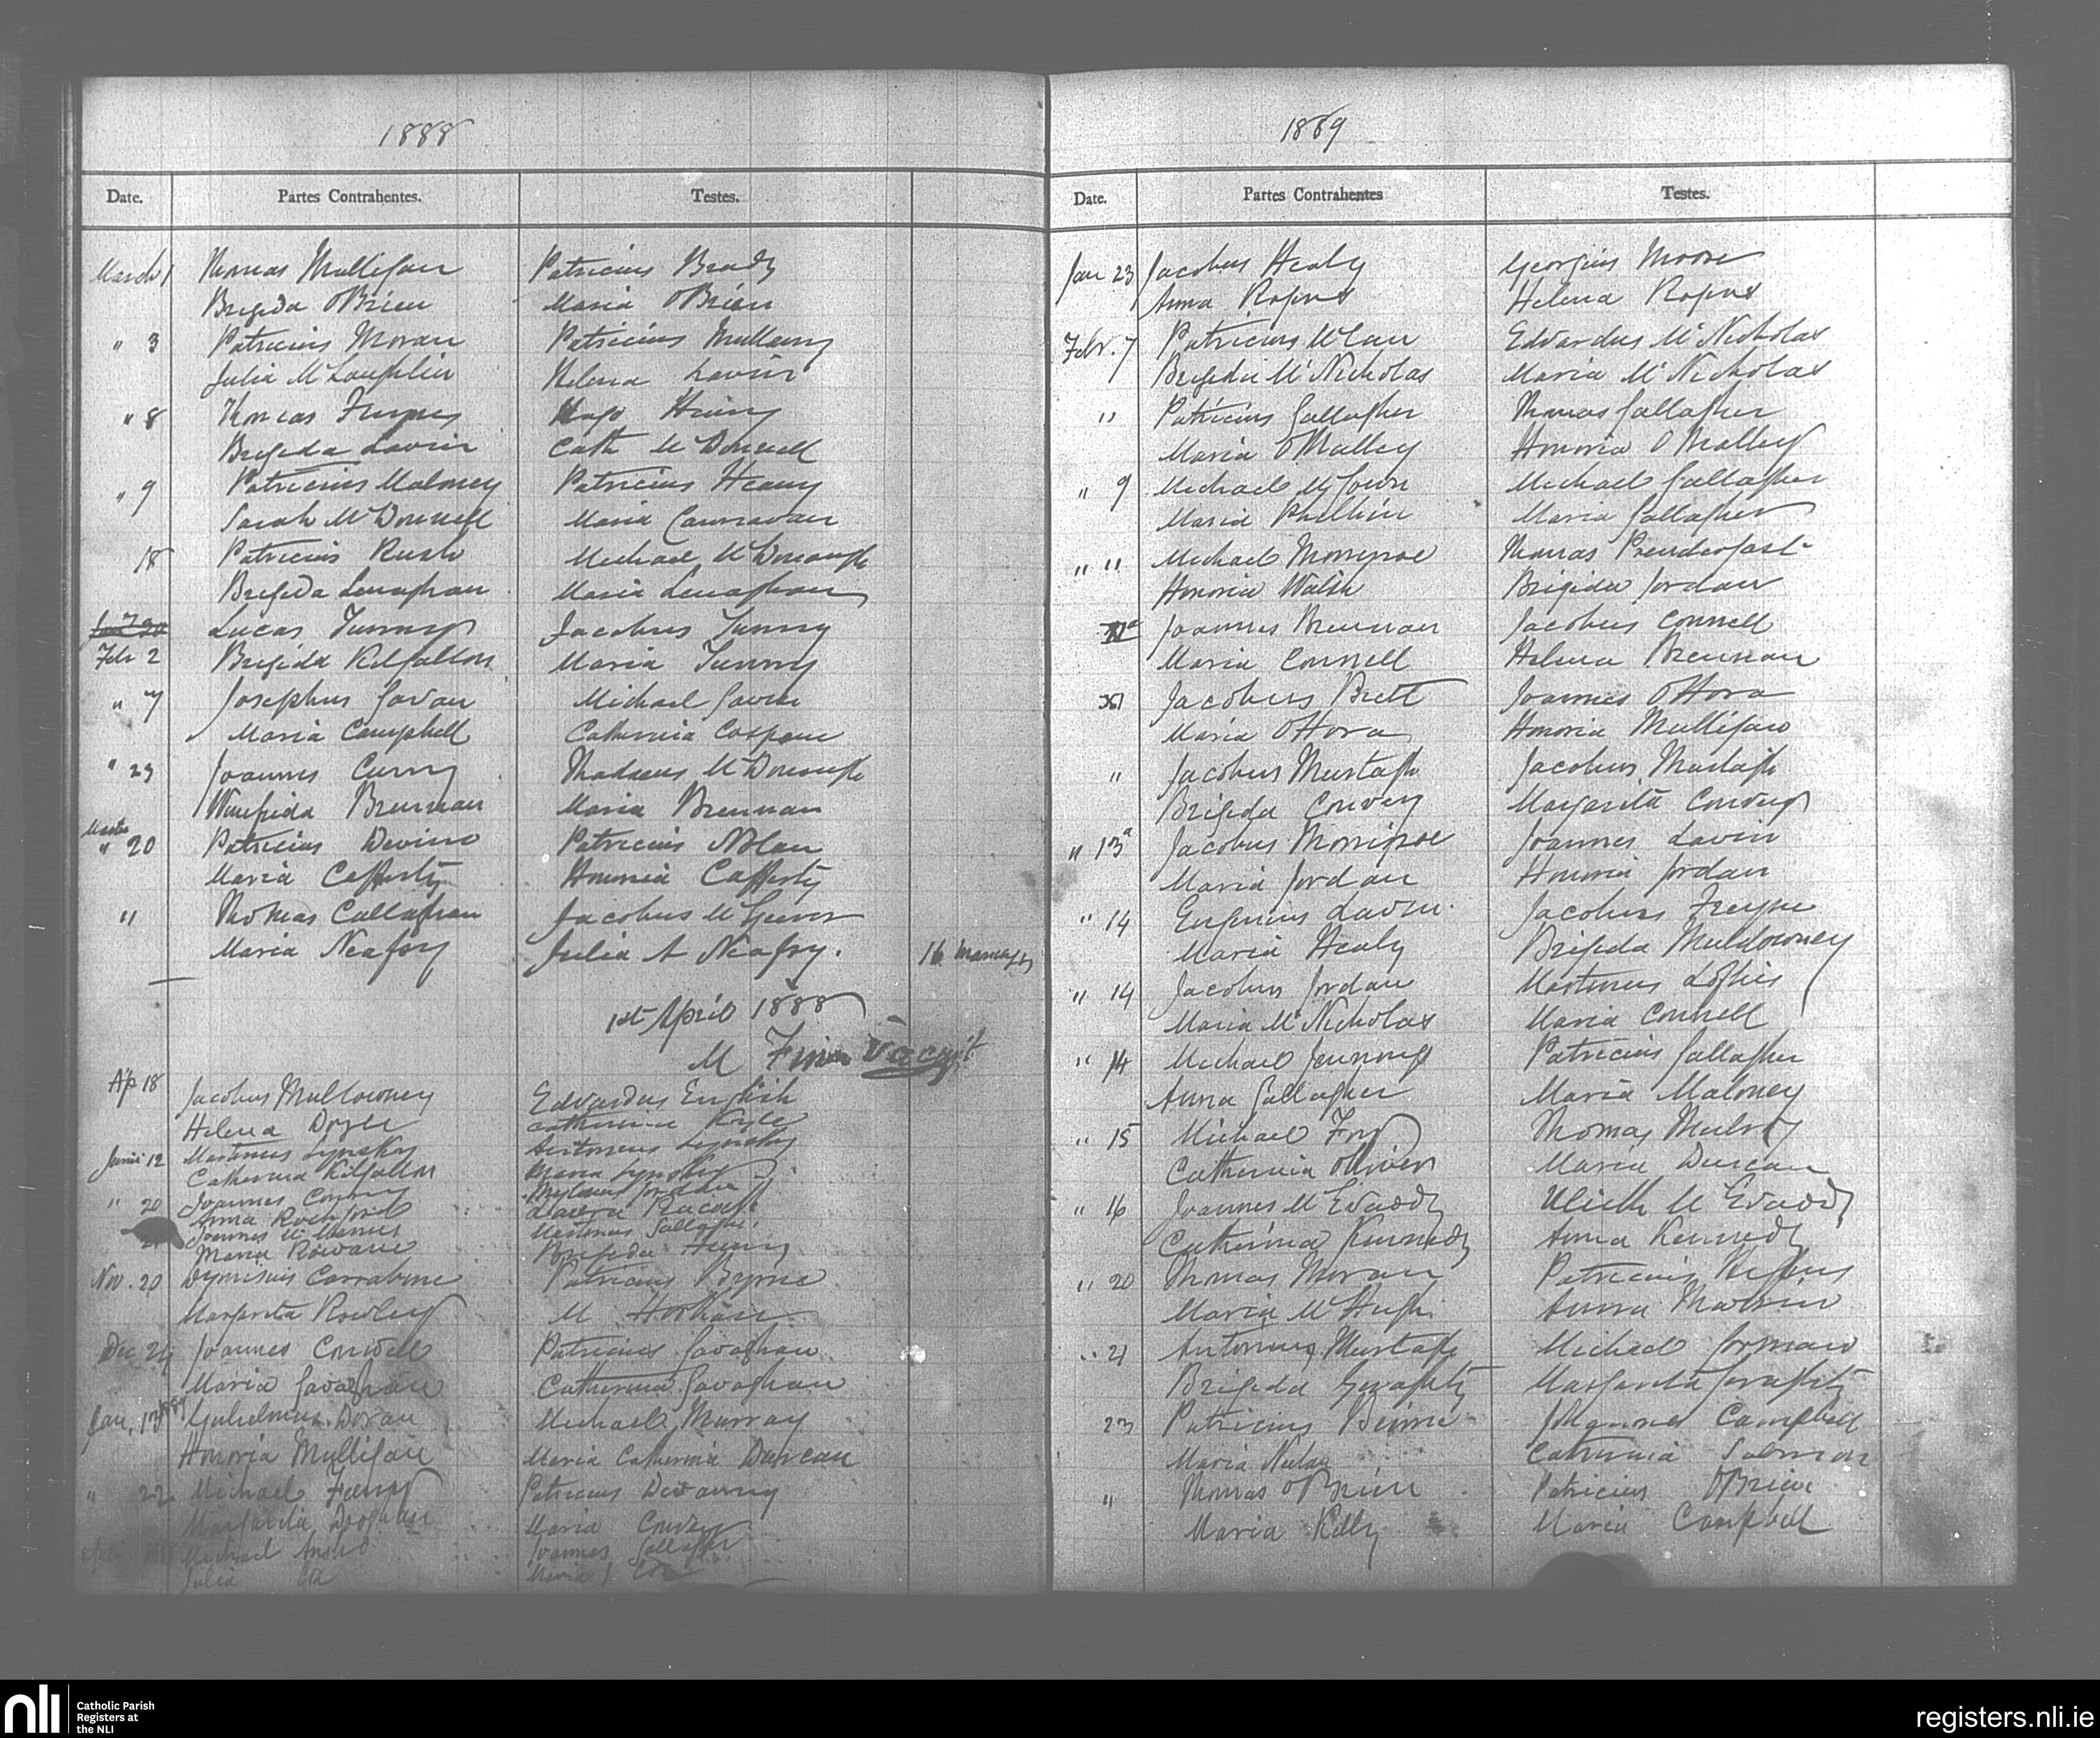 1888
Date. Partes Contrahentes. Testes.
March 1 Thomas Mulligan Patricius Brady
Brigida OBrien Maria OBrien
" 3 Patricius Moran Patricius Mullany
Julia McLoughlin Helena Lavin
" 8 Thomas Hugo
Brigida Lavin Cath McDonnell
" 9 Patricius Maloney Patricius Heany
Sarah McDonnell Maria Cannavan
18 Patricius Rush Michael McDonough
Brigida Lenaghan Maria Lenaghan
Lucas Tunny Jacobus Tunny
Feb 2 Brigida Kilgallon Maria Tunny
" 7 Josephus Gavan Michael Gavin
Maria Campbell Catherina
" 23 Joannes Curry Thadaeus McDonough
Winifrida Brennan Maria Brennan
" 20 Patricius Devine Patricius Nolan
Maria Cafferty Honoria Cafferty
" Thomas Callaghan Jacobus
Maria Neafsy Julia A Neafsy.
16 marriages
1st April 1888
M Finn
Ap 18 Jacobus Mullowney Edvardus English
Helena Doyle Catherine Kyle
Junii 12 Martinus Lynsky Antonius Lynsky
Catherina Kilgallon Maria Lynsky
" 20 Joannes
Anna
Joannes McManus Martinus Gallagher
Maria Rowane Brigida
Nov. 20 Dyonisius Carrabine Patricius Byrne
Margarita Rowley M Horkan
Dec 24 Joannes Patricius Gavaghan
Maria Gavaghan Catherina Gavaghan
Jan. 13 1889 Gulielmus Doran Michael Murray
Honoria Mulligan Maria Catherina Duncan
" 22 Michael Patricius Devanny
Margarita Maria Convey
Michael Joannes Gallagher
Julia Maria
1889
Date. Partes Contrahentes Testes.
Jan 23 Jacobus Healy Georgius Moore
Anna Rogers Helena Rogers
Febr. 7 Patricius McCan Edvardus McNicholas
Brigida McNicholas Maria McNicholas
" Patricius Gallagher Thomas Gallagher
Maria OMalley Honoria OMalley
" 9 Michael Michael Gallagher
Maria Philbin Maria Gallagher
" " Michael Morrisroe Thomas Prendergast
Honoria Walsh Brigida Jordan
Joannes Brennan Jacobus Connell
Maria Connell Helena Brennan
Jacobus Brett Joannes OHora
Maria OHora Honoria Mulligan
" Jacobus Murtagh Jacobus Murtagh
Brigida Convey Margarita Convey
" 13a Jacobus Morrisroe Joannes Lavin
Maria Jordan Honoria Jordan
" 14 Eugenius Lavin Jacobus Freyne
Maria Healy Brigida Muldowney
" 14 Jacobus Jordan Martinus Loftus
Maria McNicholas Maria Connell
" 14 Michael Jennings Patricius Gallagher
Anna Gallagher Maria Maloney
" 15 Michael Foy Thomas Mulroy
Catherina Oliver Maria Duncan
" 16 Joannes McEvaddy Ulick McEvaddy
Catherina Kennedy Anna Kennedy
" 20 Thomas Moran Patricius
Maria McHugh Anna
" 21 Antonius Murtagh Michael Gorman
Brigida Geraghty Margarita Geraghty
23 Patricius Beirne Johannes Campbell
Maria Nolan Catherina Salmon
" Thomas OBrien Patricius OBrien
Maria Kelly Maria Campbell
nli Catholic Parish
Registers at
the NLI
registers.nli.ie